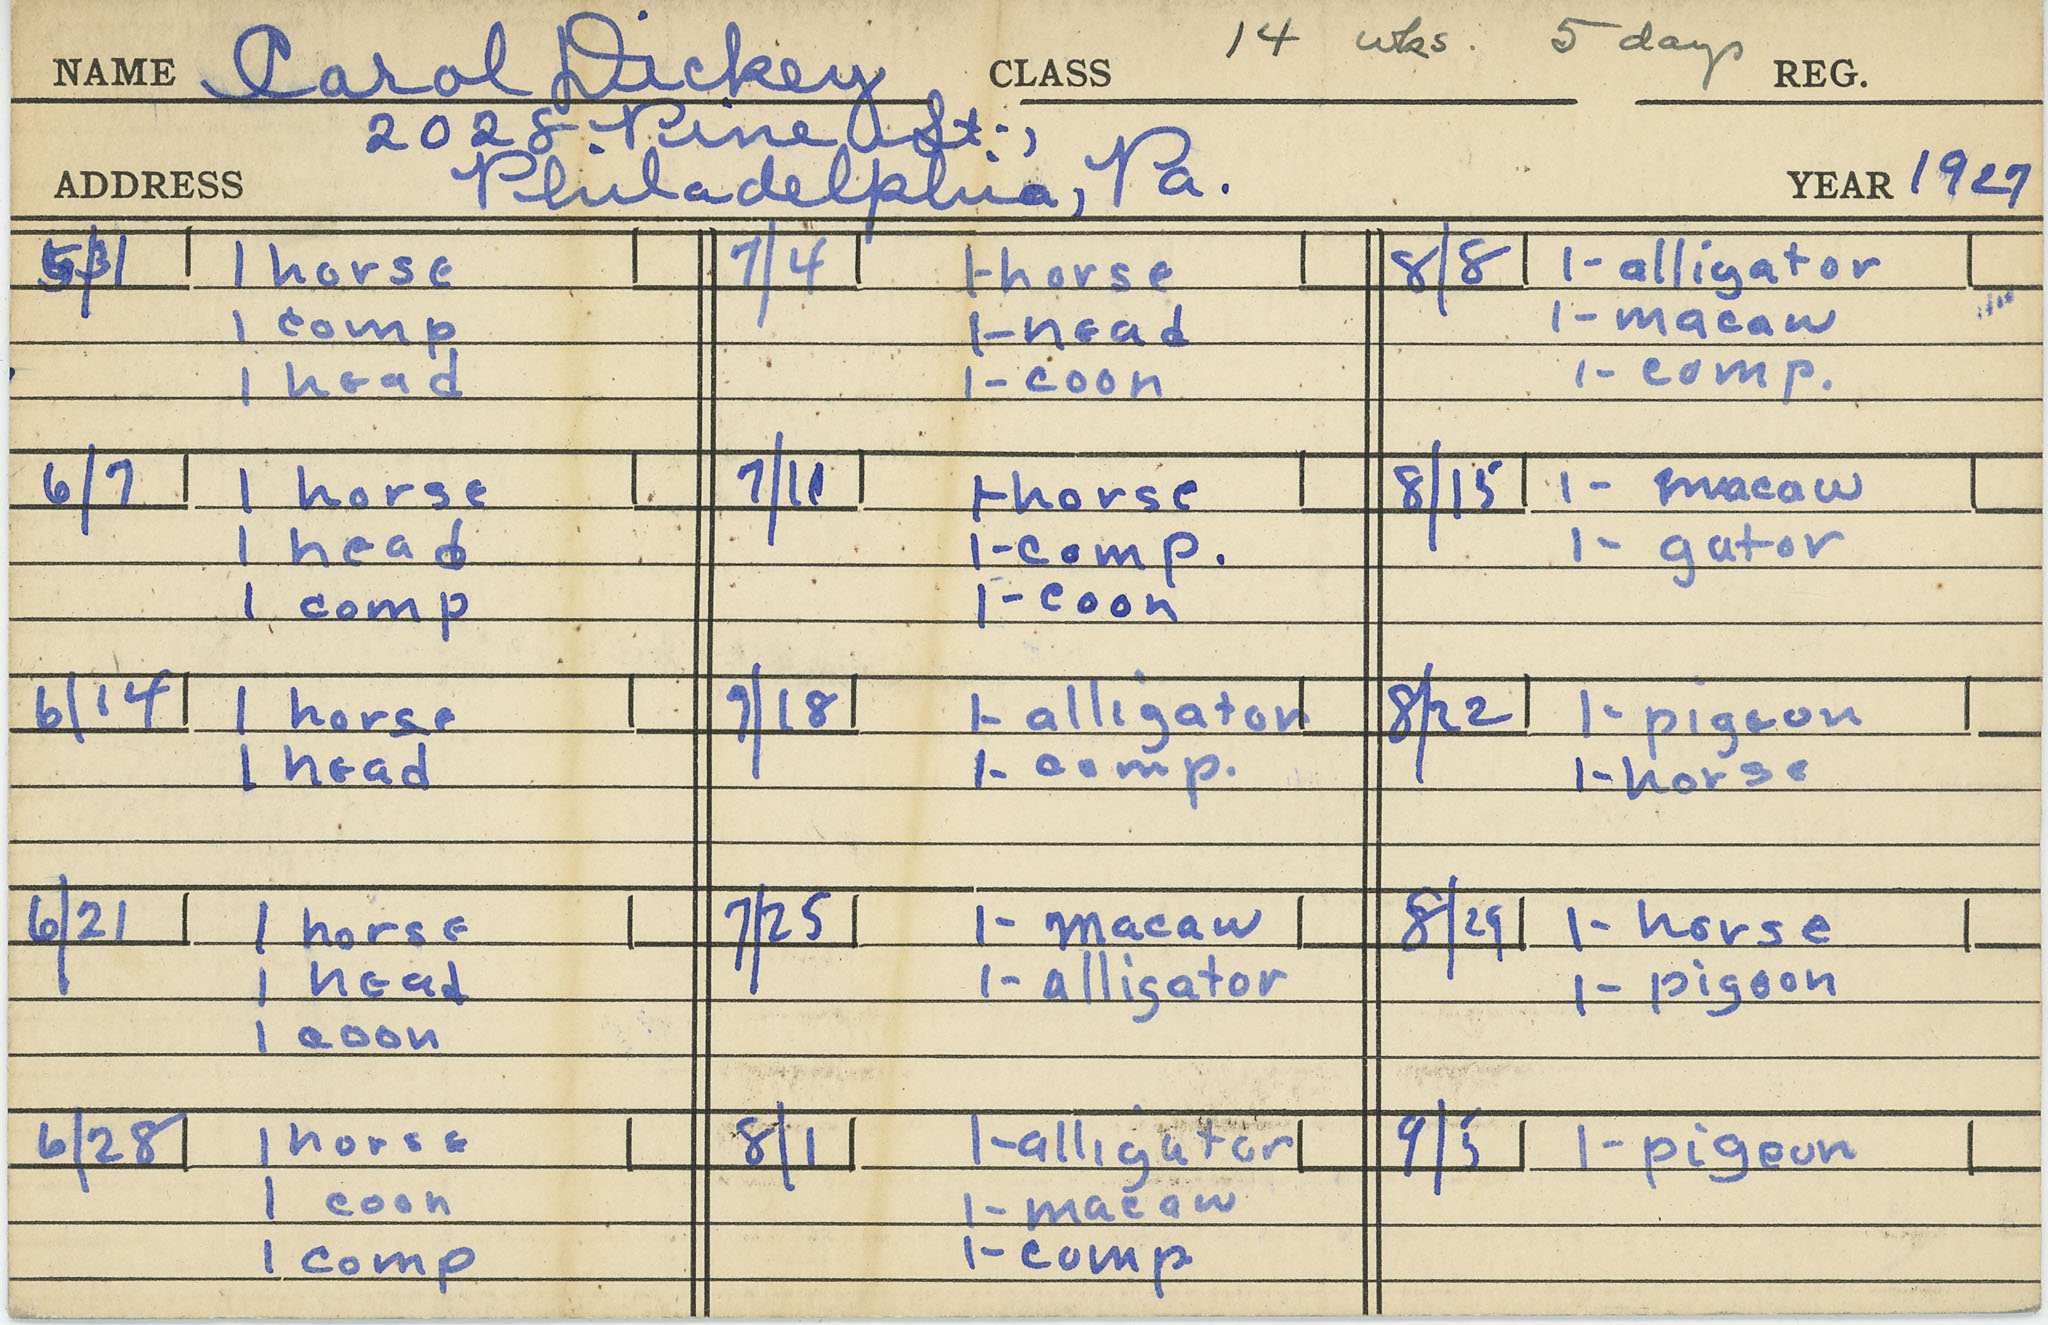 14 wks. 5 days
NAME Carol Dickey CLASS REG.
2028 Pine St.,
ADDRESS Philadelphia, Pa. YEAR 1927
5/31 1 horse
1 comp
1 head
6/7 1 horse
1 head
1 comp
6/14 1 horse
1 head
6/21 1 horse
1 head
1 coon
6/28 1 horse
1 coon
1 comp
7/4 1-horse
1-head
1-coon
7/11 1-horse
1-comp.
1-coon
7/18 1-alligator
1-comp.
7/25 1-macaw
1-alligator
8/1 1-alligator
1-macaw
1-comp
8/8 1-alligator
1-macaw
1-comp.
8/15 1-macaw
1-gator
8/22 1-pigeon
1-horse
8/29 1-horse
1-pigeon
9/5 1-pigeon